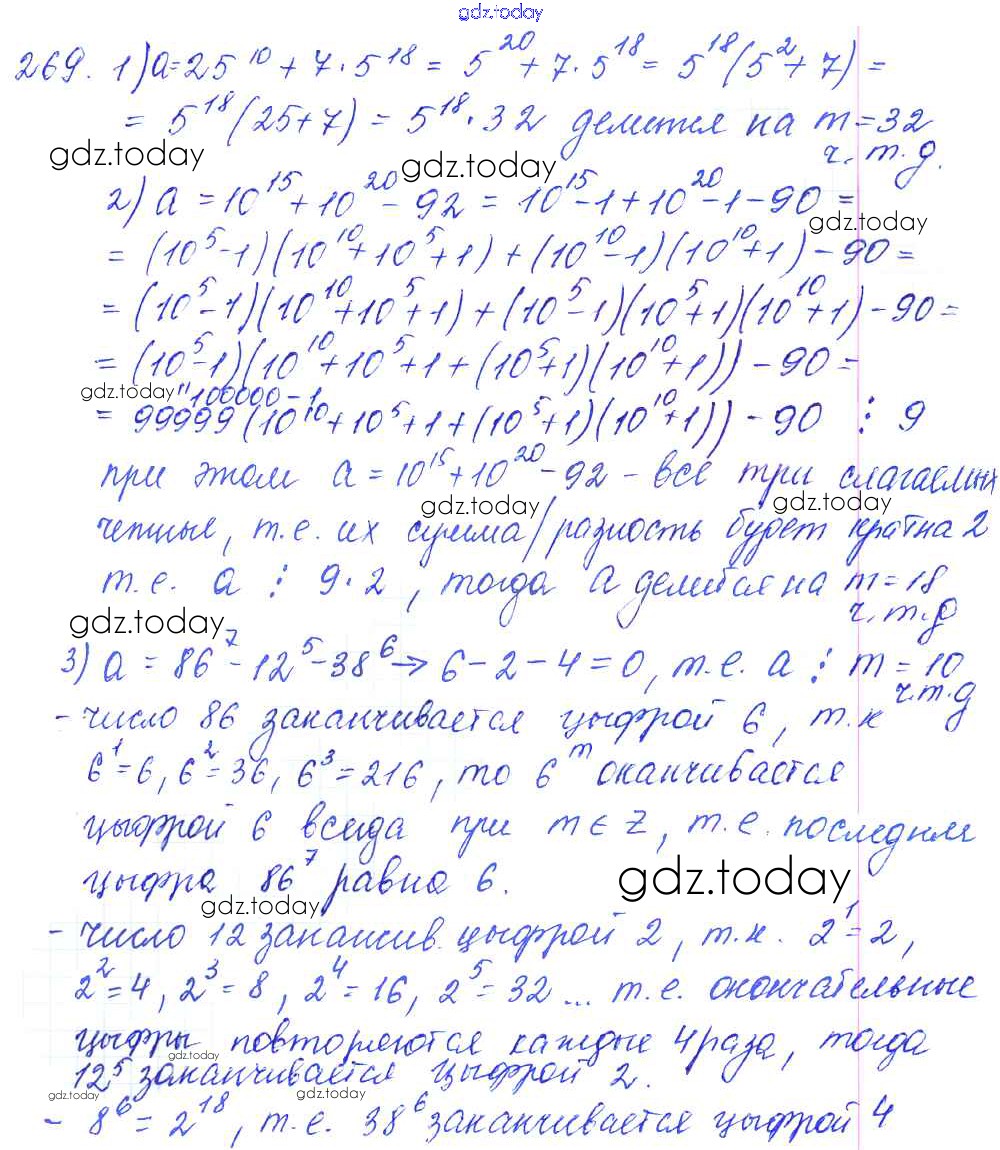 gdz.today
269. 1) a = 25^10 + 7·5^18 = 5^20 + 7·5^18 = 5^18(5^2 + 7) =
= 5^18(25+7) = 5^18·32 делится на m=32
gdz.today gdz.today ч.т.д.
2) a = 10^15 + 10^20 - 92 = 10^15 - 1 + 10^20 - 1 - 90 =
gdz.today
= (10^5-1)(10^10+10^5+1) + (10^10-1)(10^10+1) - 90 =
= (10^5-1)(10^10+10^5+1) + (10^5-1)(10^5+1)(10^10+1) - 90 =
= (10^5-1)(10^10+10^5+1+(10^5+1)(10^10+1)) - 90 =
gdz.today "100000-1
= 99999(10^10+10^5+1+(10^5+1)(10^10+1)) - 90 ⋮ 9
при этом a = 10^15 + 10^20 - 92 - все три слагаемых
gdz.today gdz.today
четные, т.е. их сумма/разность будет кратна 2
т.е. a ⋮ 9·2, тогда a делится на m=18
gdz.today ч.т.д
3) a = 86^7 - 12^5 - 38^6 → 6-2-4=0, т.е. a ⋮ m=10
ч.т.д
- число 86 заканчивается цыфрой 6, т.к
6^1=6, 6^2=36, 6^3=216, то 6^m оканчивается
цыфрой 6 всегда при m∈Z, т.е. последняя
цыфра 86^7 равна 6. gdz.today
gdz.today
- число 12 заканчив. цыфрой 2, т.к. 2^1=2,
2^2=4, 2^3=8, 2^4=16, 2^5=32... т.е. окончательные
цыфры повторяются каждые 4 раза, тогда
gdz.today
12^5 заканчивается цыфрой 2.
gdz.today gdz.today
- 8^6 = 2^18, т.е. 38^6 заканчивается цыфрой 4